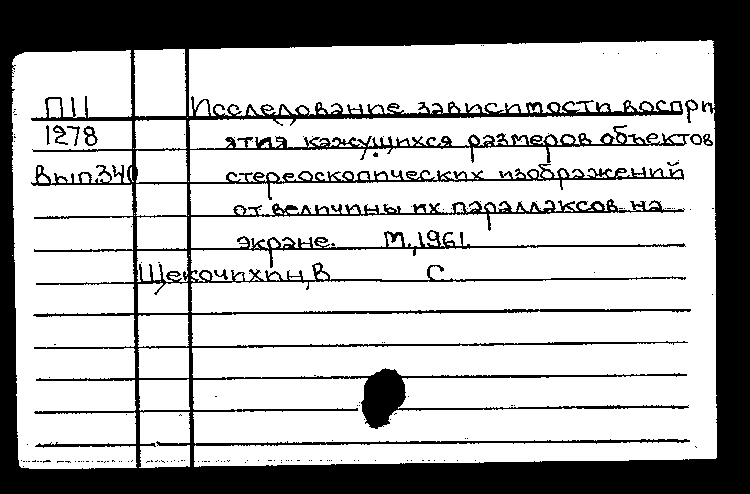 П11 Исследование зависимости воспри
1278 ятия кажущихся размеров объектов
вып.340 стереоскопических изображений
от величины их параллаксов на
экране. М., 1961.
Щекочихин, В С